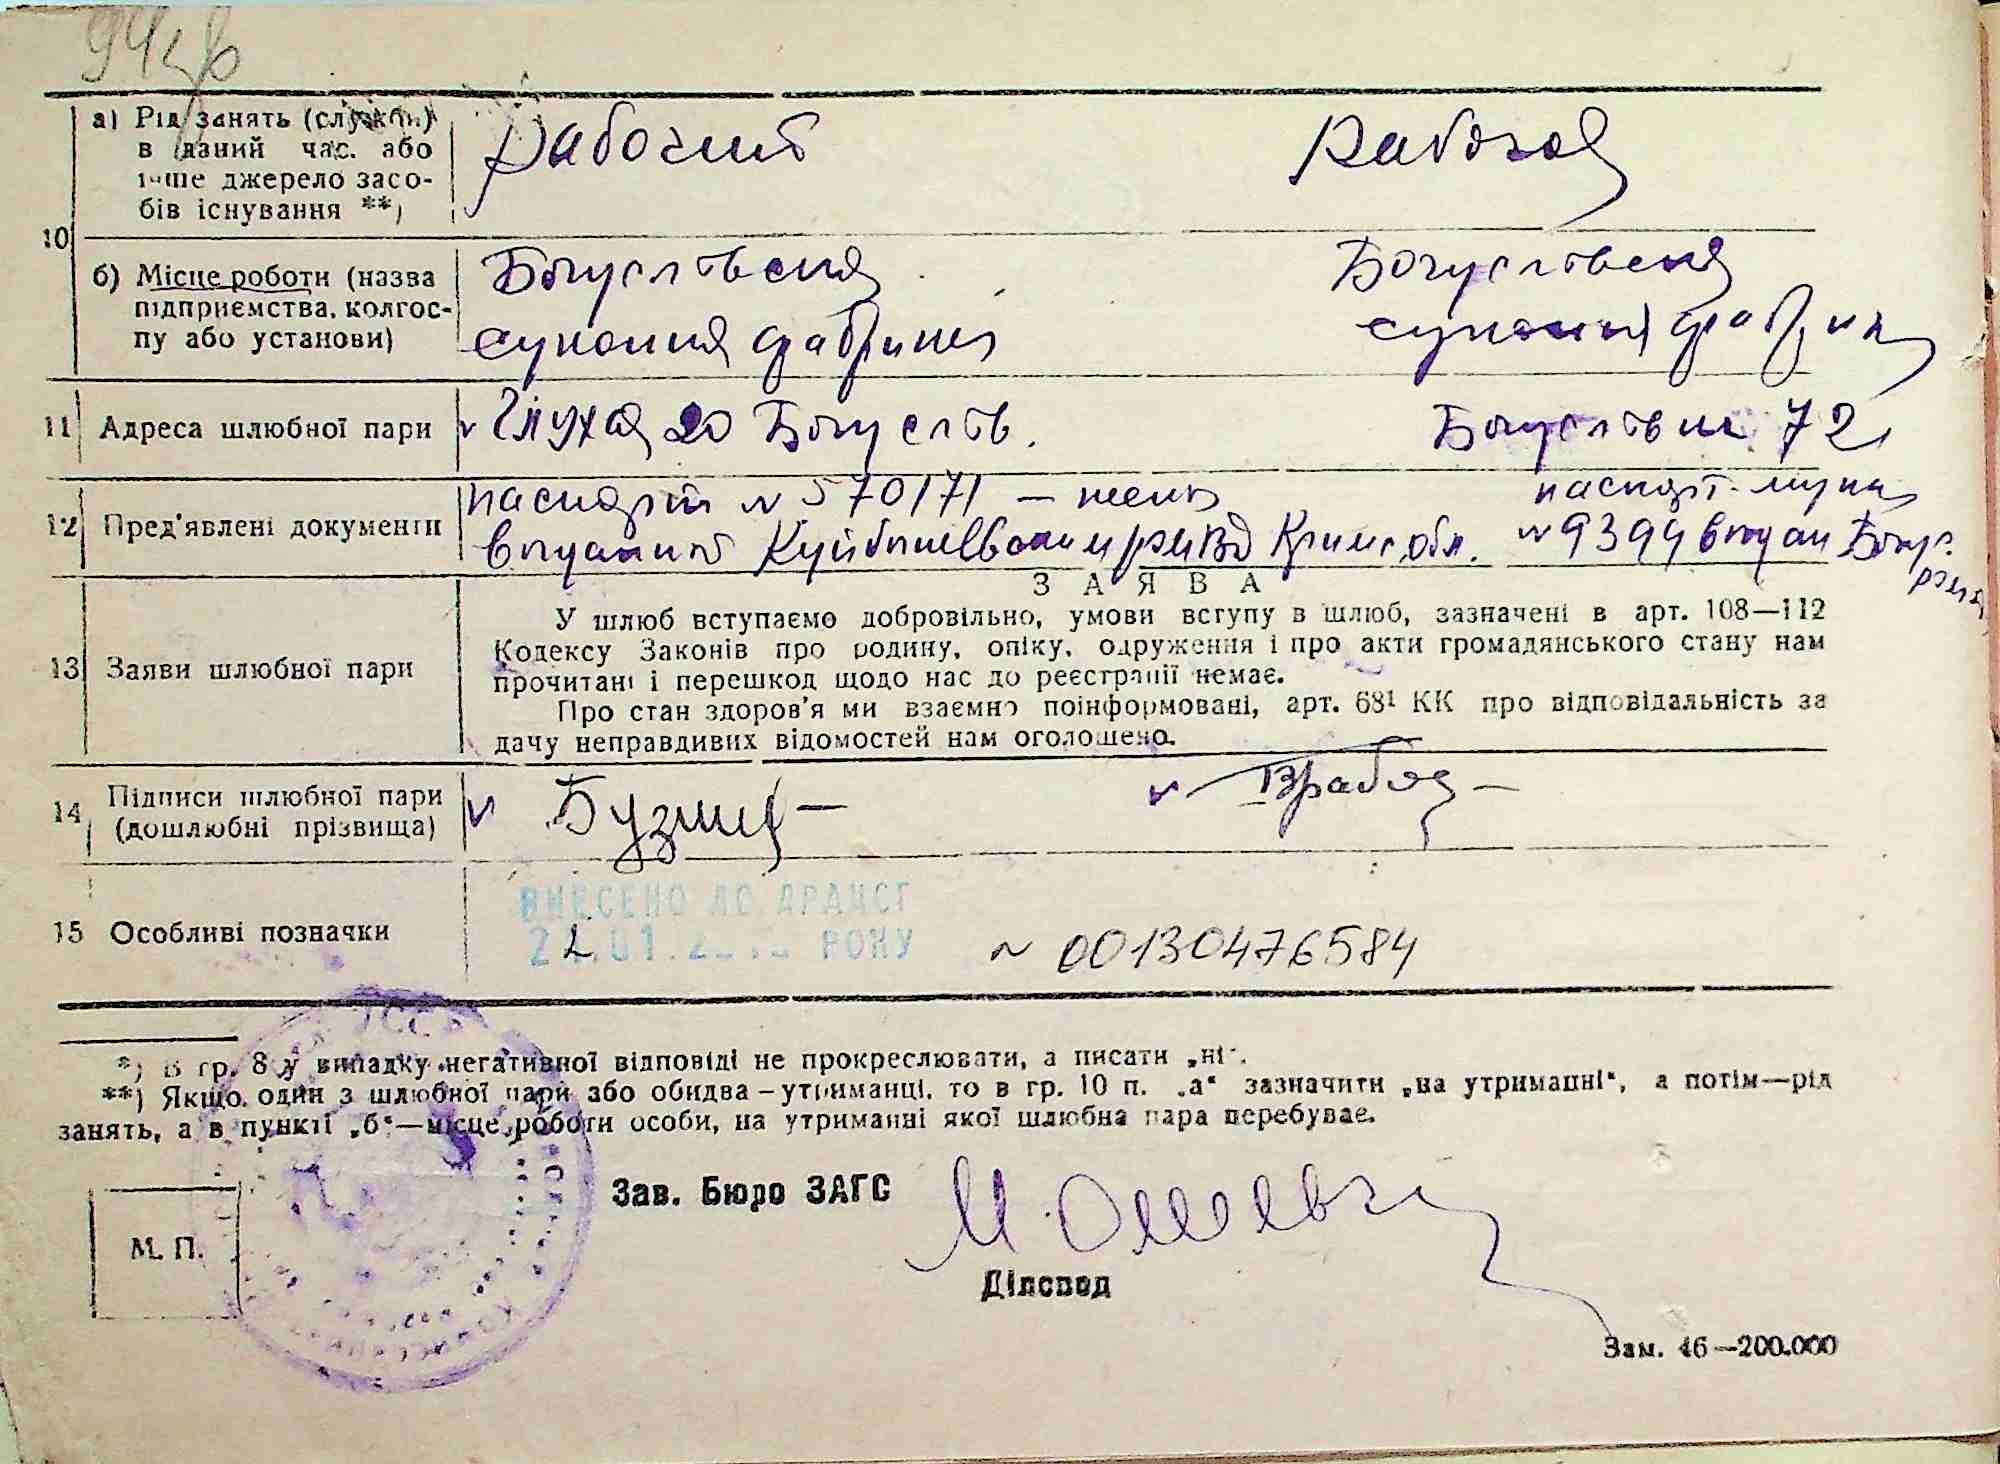 94
а) Рід занять (служби)
в даний час. або
інше джерело засо-
бів існування **)
Рабочий
Рабочая
10
б) Місце роботи (назва
підприємства, колгос-
пу або установи)
Богуславская
суконная фабрика
Богуславская
суконная фабрика
11 Адреса шлюбної пари
Глухая 20 Богуслав.
72
12 Пред'явлені документи
паспорт № 570171 —
выданный Куйбышевским Крим. обл.
паспорт
№ 9399 выдан Богус.
ЗАЯВА
13 Заяви шлюбної пари
У шлюб вступаємо добровільно, умови вступу в шлюб, зазначені в арт. 108—112
Кодексу Законів про родину, опіку, одруження і про акти громадянського стану нам
прочитані і перешкод щодо нас до реєстрації немає.
Про стан здоров'я ми взаємно поінформовані, арт. 68¹ КК про відповідальність за
дачу неправдивих відомостей нам оголошено.
14 Підписи шлюбної пари
(дошлюбні прізвища)
15 Особливі позначки
ВНЕСЕНО ДО ДРАЦСГ
РОКУ
№ 00130476584
*) В гр. 8 у випадку негативної відповіді не прокреслювати, а писати „ні“.
**) Якщо один з шлюбної пари або обидва – утриманці, то в гр. 10 п. „а“ зазначити „на утриманні“, а потім—рід
занять, а в пункті „б“—місце роботи особи, на утриманні якої шлюбна пара перебуває.
Зав. Бюро ЗАГС
М. П.
Діловод
Зам. 46—200.000